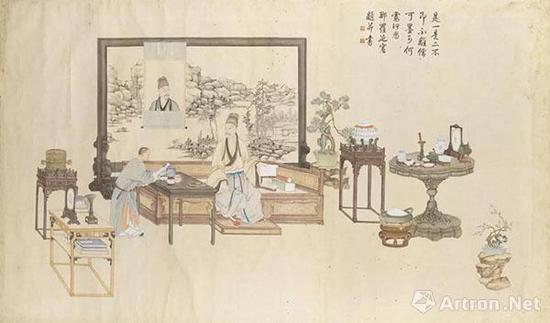 是一是二不
即不離儒
可墨可何
慮何思
那羅延窟
題并書
Artron.Net